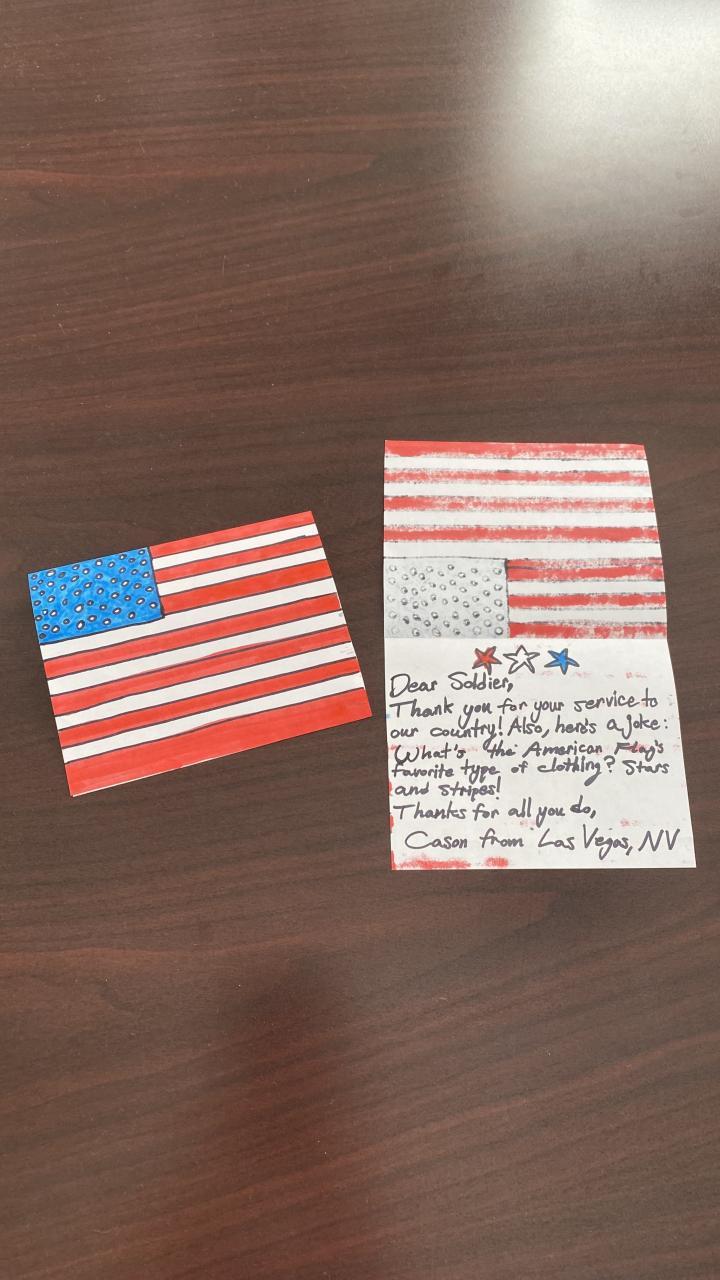 Dear Soldier,
Thank you for your service to
our country! Also, here's a joke:
What's the American Flag's
favorite type of clothing? Stars
and stripes!
Thanks for all you do,
Cason from Las Vegas, NV